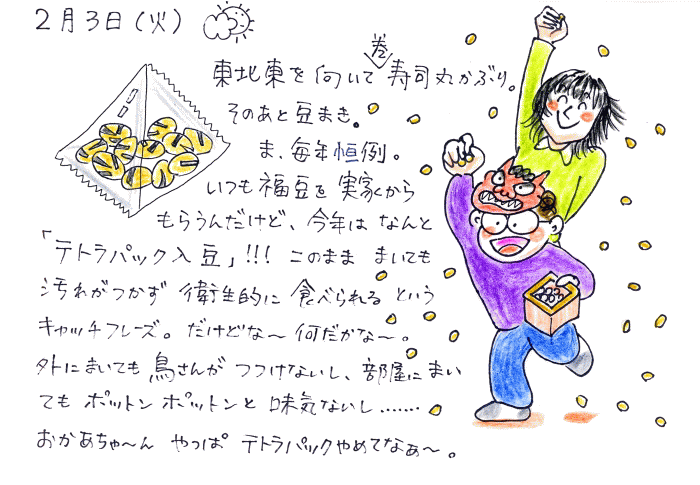 2月3日(火)
東北東を向いて巻寿司丸かぶり。
そのあと豆まき。
ま、毎年恒例。
いつも福豆を実家から
もらうんだけど、今年はなんと
「テトラパック入豆」!!! このまま まいても
汚れがつかず 衛生的に 食べられる という
キャッチフレーズ。だけどな〜 何だかな〜。
外にまいても 鳥さんが つつけないし、部屋にまい
ても ボットン ボットンと 味気ないし……
おかあちゃ〜ん やっぱ テトラパックやめてなぁ〜。